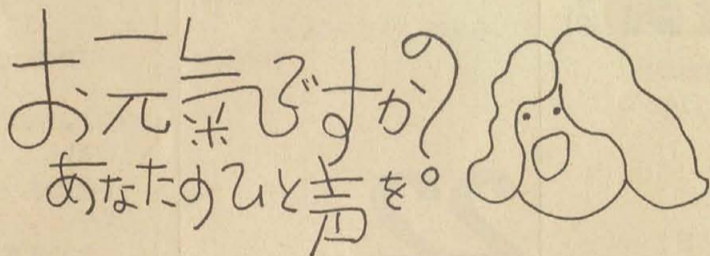 お元気ですか?
あなたのひと声を。